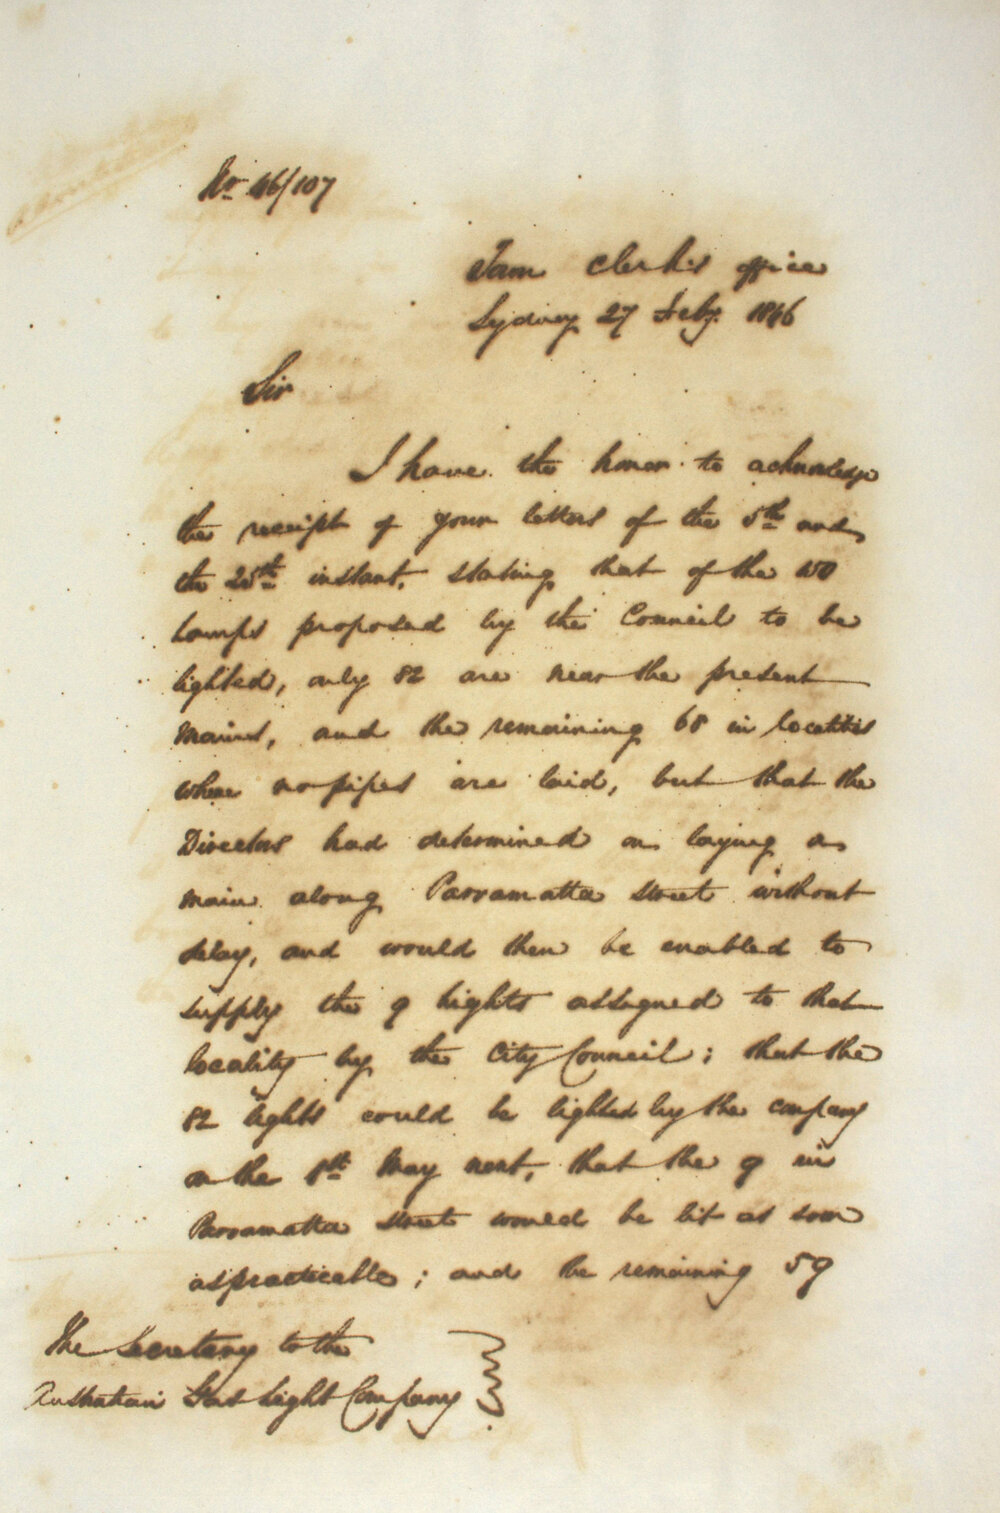 No. 46/107
Town Clerk's office
Sydney 27 Feby. 1846
Sir
I have the honor to acknowledge
the receipt of your letters of the 5th and
the 25th instant, stating that of the 150
Lamps proposed by the Council to be
lighted, only 82 are near the present
Mains, and the remaining 68 in localities
where no pipes are laid, but that the
Directors had determined on laying a
main along Parramatta Street without
delay, and would then be enabled to
supply the 9 lights assigned to that
locality by the City Council; that the
82 lights could be lighted by the company
on the 1st May next, that the 9 in
Parramatta Street would be lit as soon
as practicable; and the remaining 59
The Secretary to the
Australian Gas Light Company